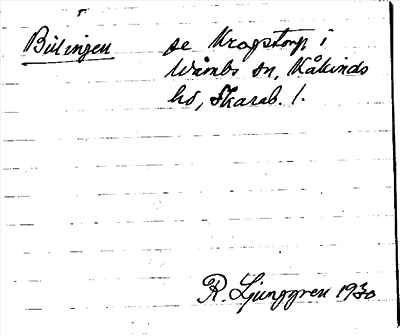 Billingen se Kragstorp i
Wåmbs sn, Kåkinds
hd, Skarab. l.
R. Ljunggren 1930